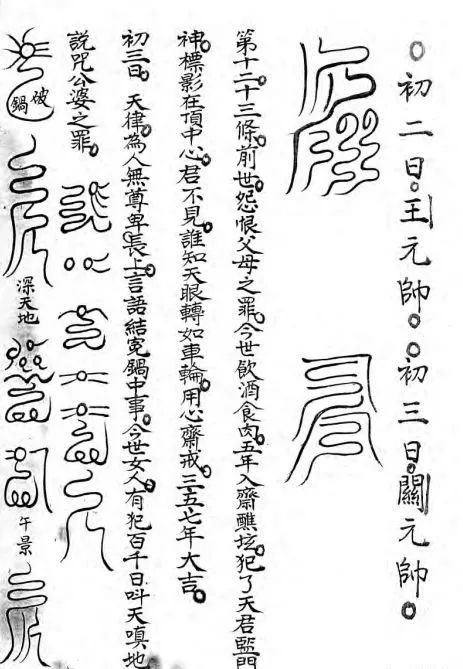 〇初二日。王元帥。〇初三日。關元帥。
第十二十三條。前世。怨恨父母之罪。今世飲酒食肉。五年入齋醮坛。犯了天君監門
神。標影在頂中心。君不見。誰知天眼轉如車輪。用心齋戒。三五七年大吉。
初三日。天律。為人無尊卑。長上言語結寃鍋中事。今世女人。有犯百千日叫天嗔地
說咒公婆之罪。
破鍋
深天地
午景